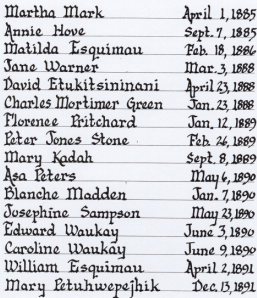 Martha Mark April 1, 1885
Annie Hove Sept. 7, 1885
Matilda Esquimau Feb. 18, 1886
Jane Warner Mar. 3, 1888
David Etukitsininani April 23, 1888
Charles Mortimer Green Jan. 23, 1888
Florence Pritchard Jan. 12, 1889
Peter Jones Stone Feb. 26, 1889
Mary Kadah Sept. 8, 1889
Asa Peters May 6, 1890
Blanche Madden Jan. 7, 1890
Josephine Sampson May 23, 1890
Edward Waukay June 3, 1890
Caroline Waukay June 9, 1890
William Esquimau April 2, 1891
Mary Petuhwepejhik Dec. 13, 1891